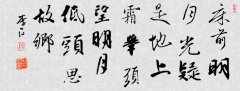 床前明
月光疑
是地上
霜舉頭
望明月
低頭思
故鄉
李白